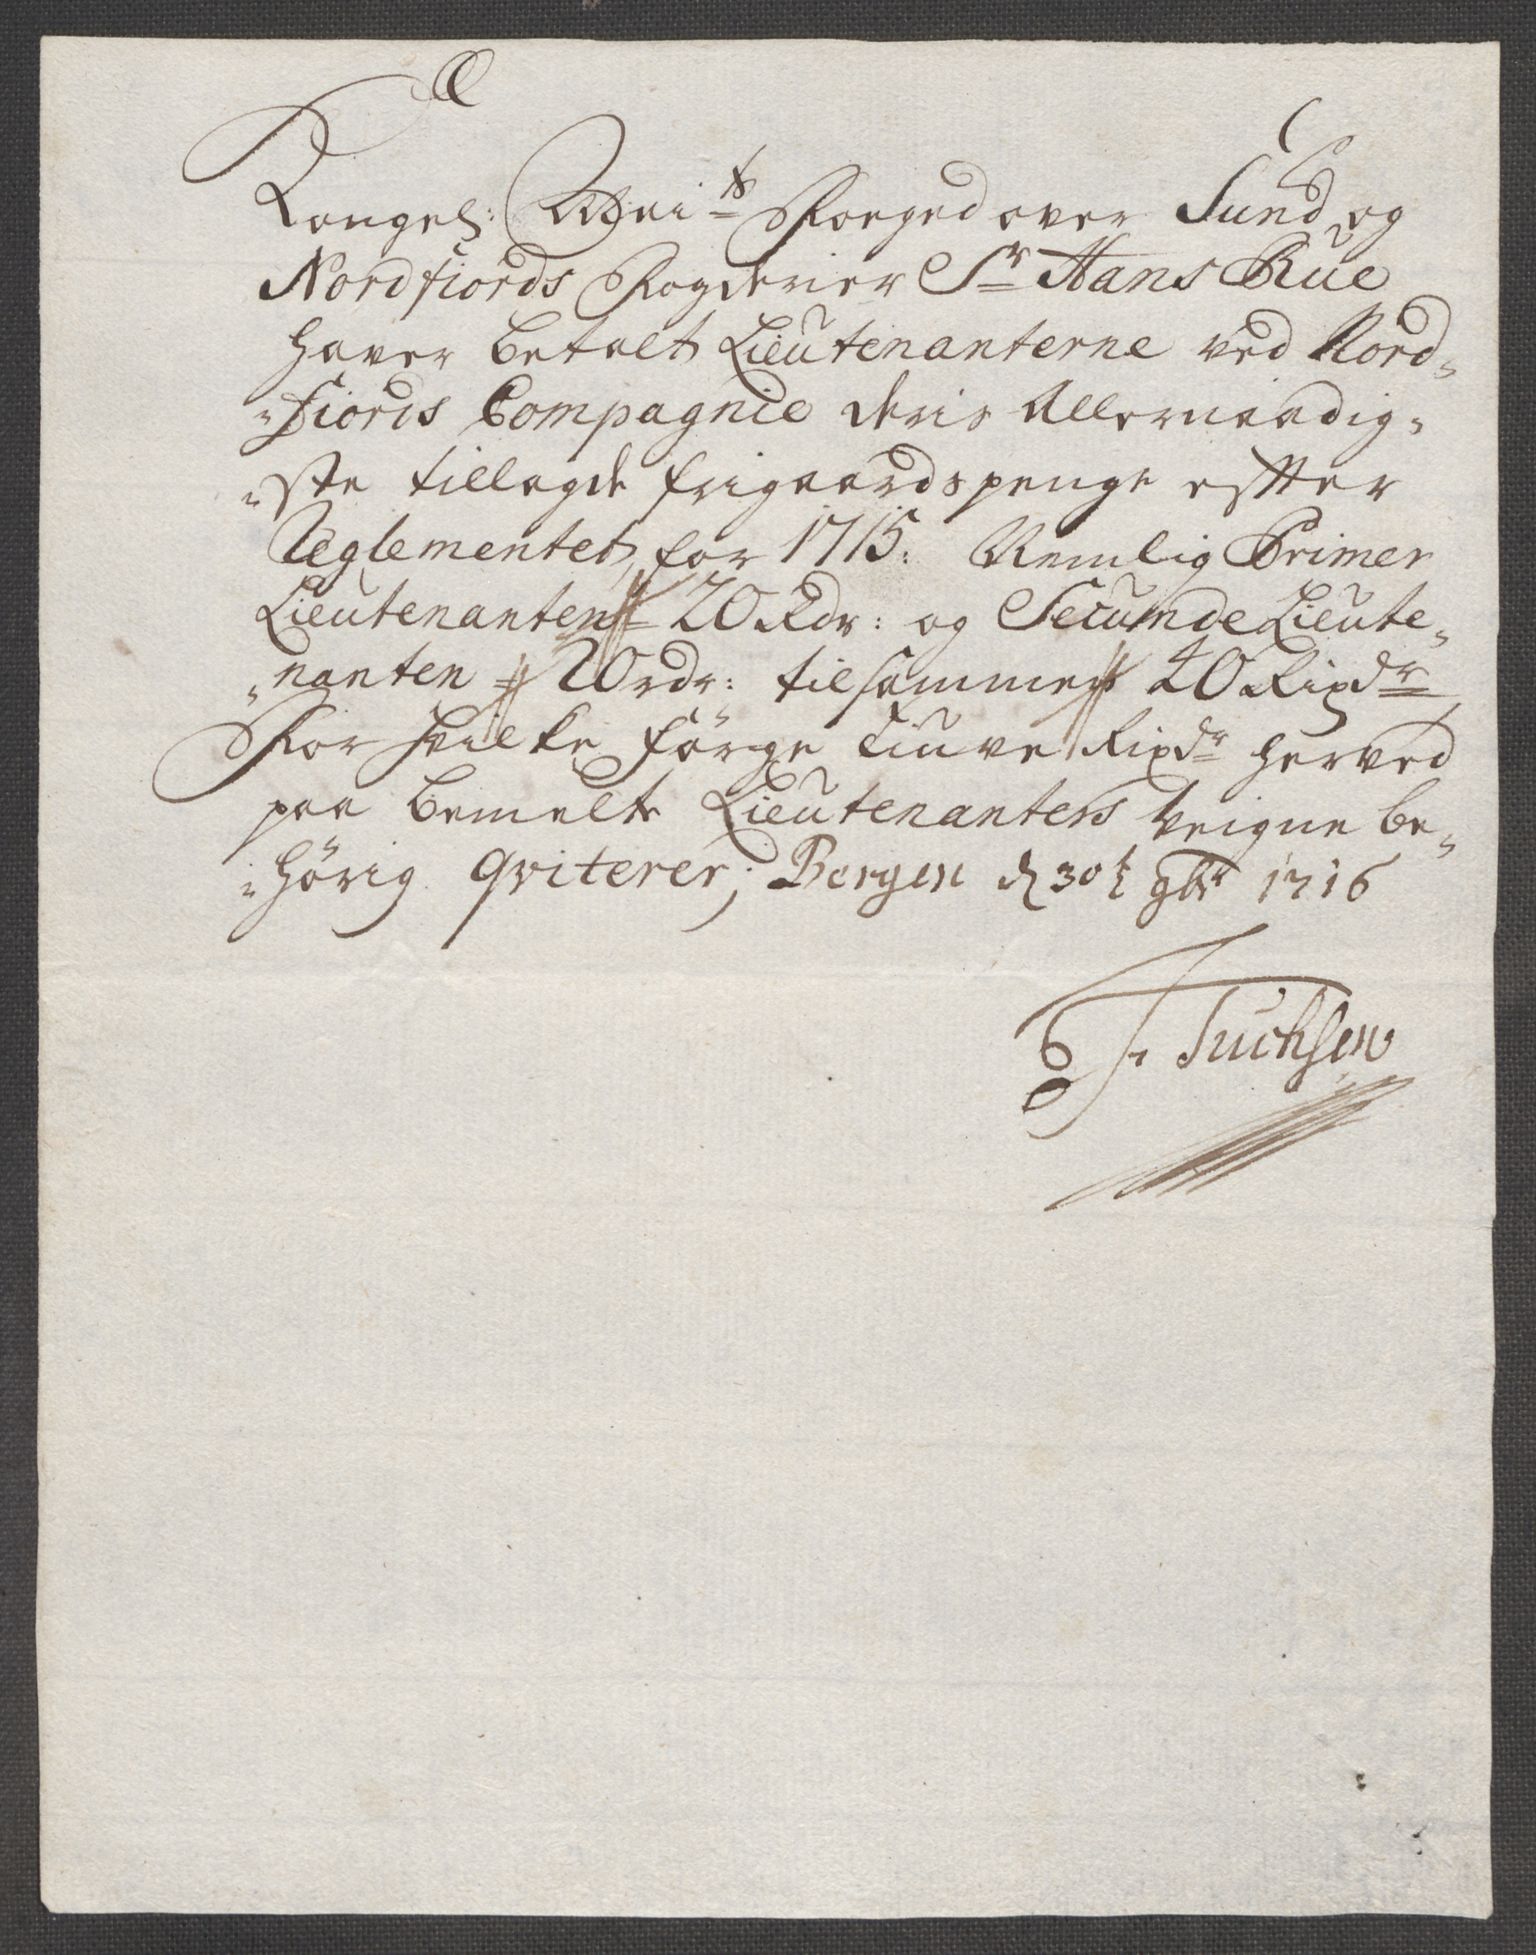 Kongel: Mai:ts Foeged over Sund og
Nordfiords Fogderier Sr Hans Rue
haver betalt Lieutenanterne ved Nord=
=fiords Compagnie deris Allernaadig=
=ste tillagde frigaardspenge effter
Reglementet for 1715: Nemlig Primer
Lieutenanten 20 Rdr: og Secunde Lieute=
=nanten 20 rdr: tilsammen 40 Rixdr
For hvilke förge tiuve Rixdr herved
paa bemelte Lieutenanters veigne be=
=hörig qviterer; Bergen d 30t 9br 1716